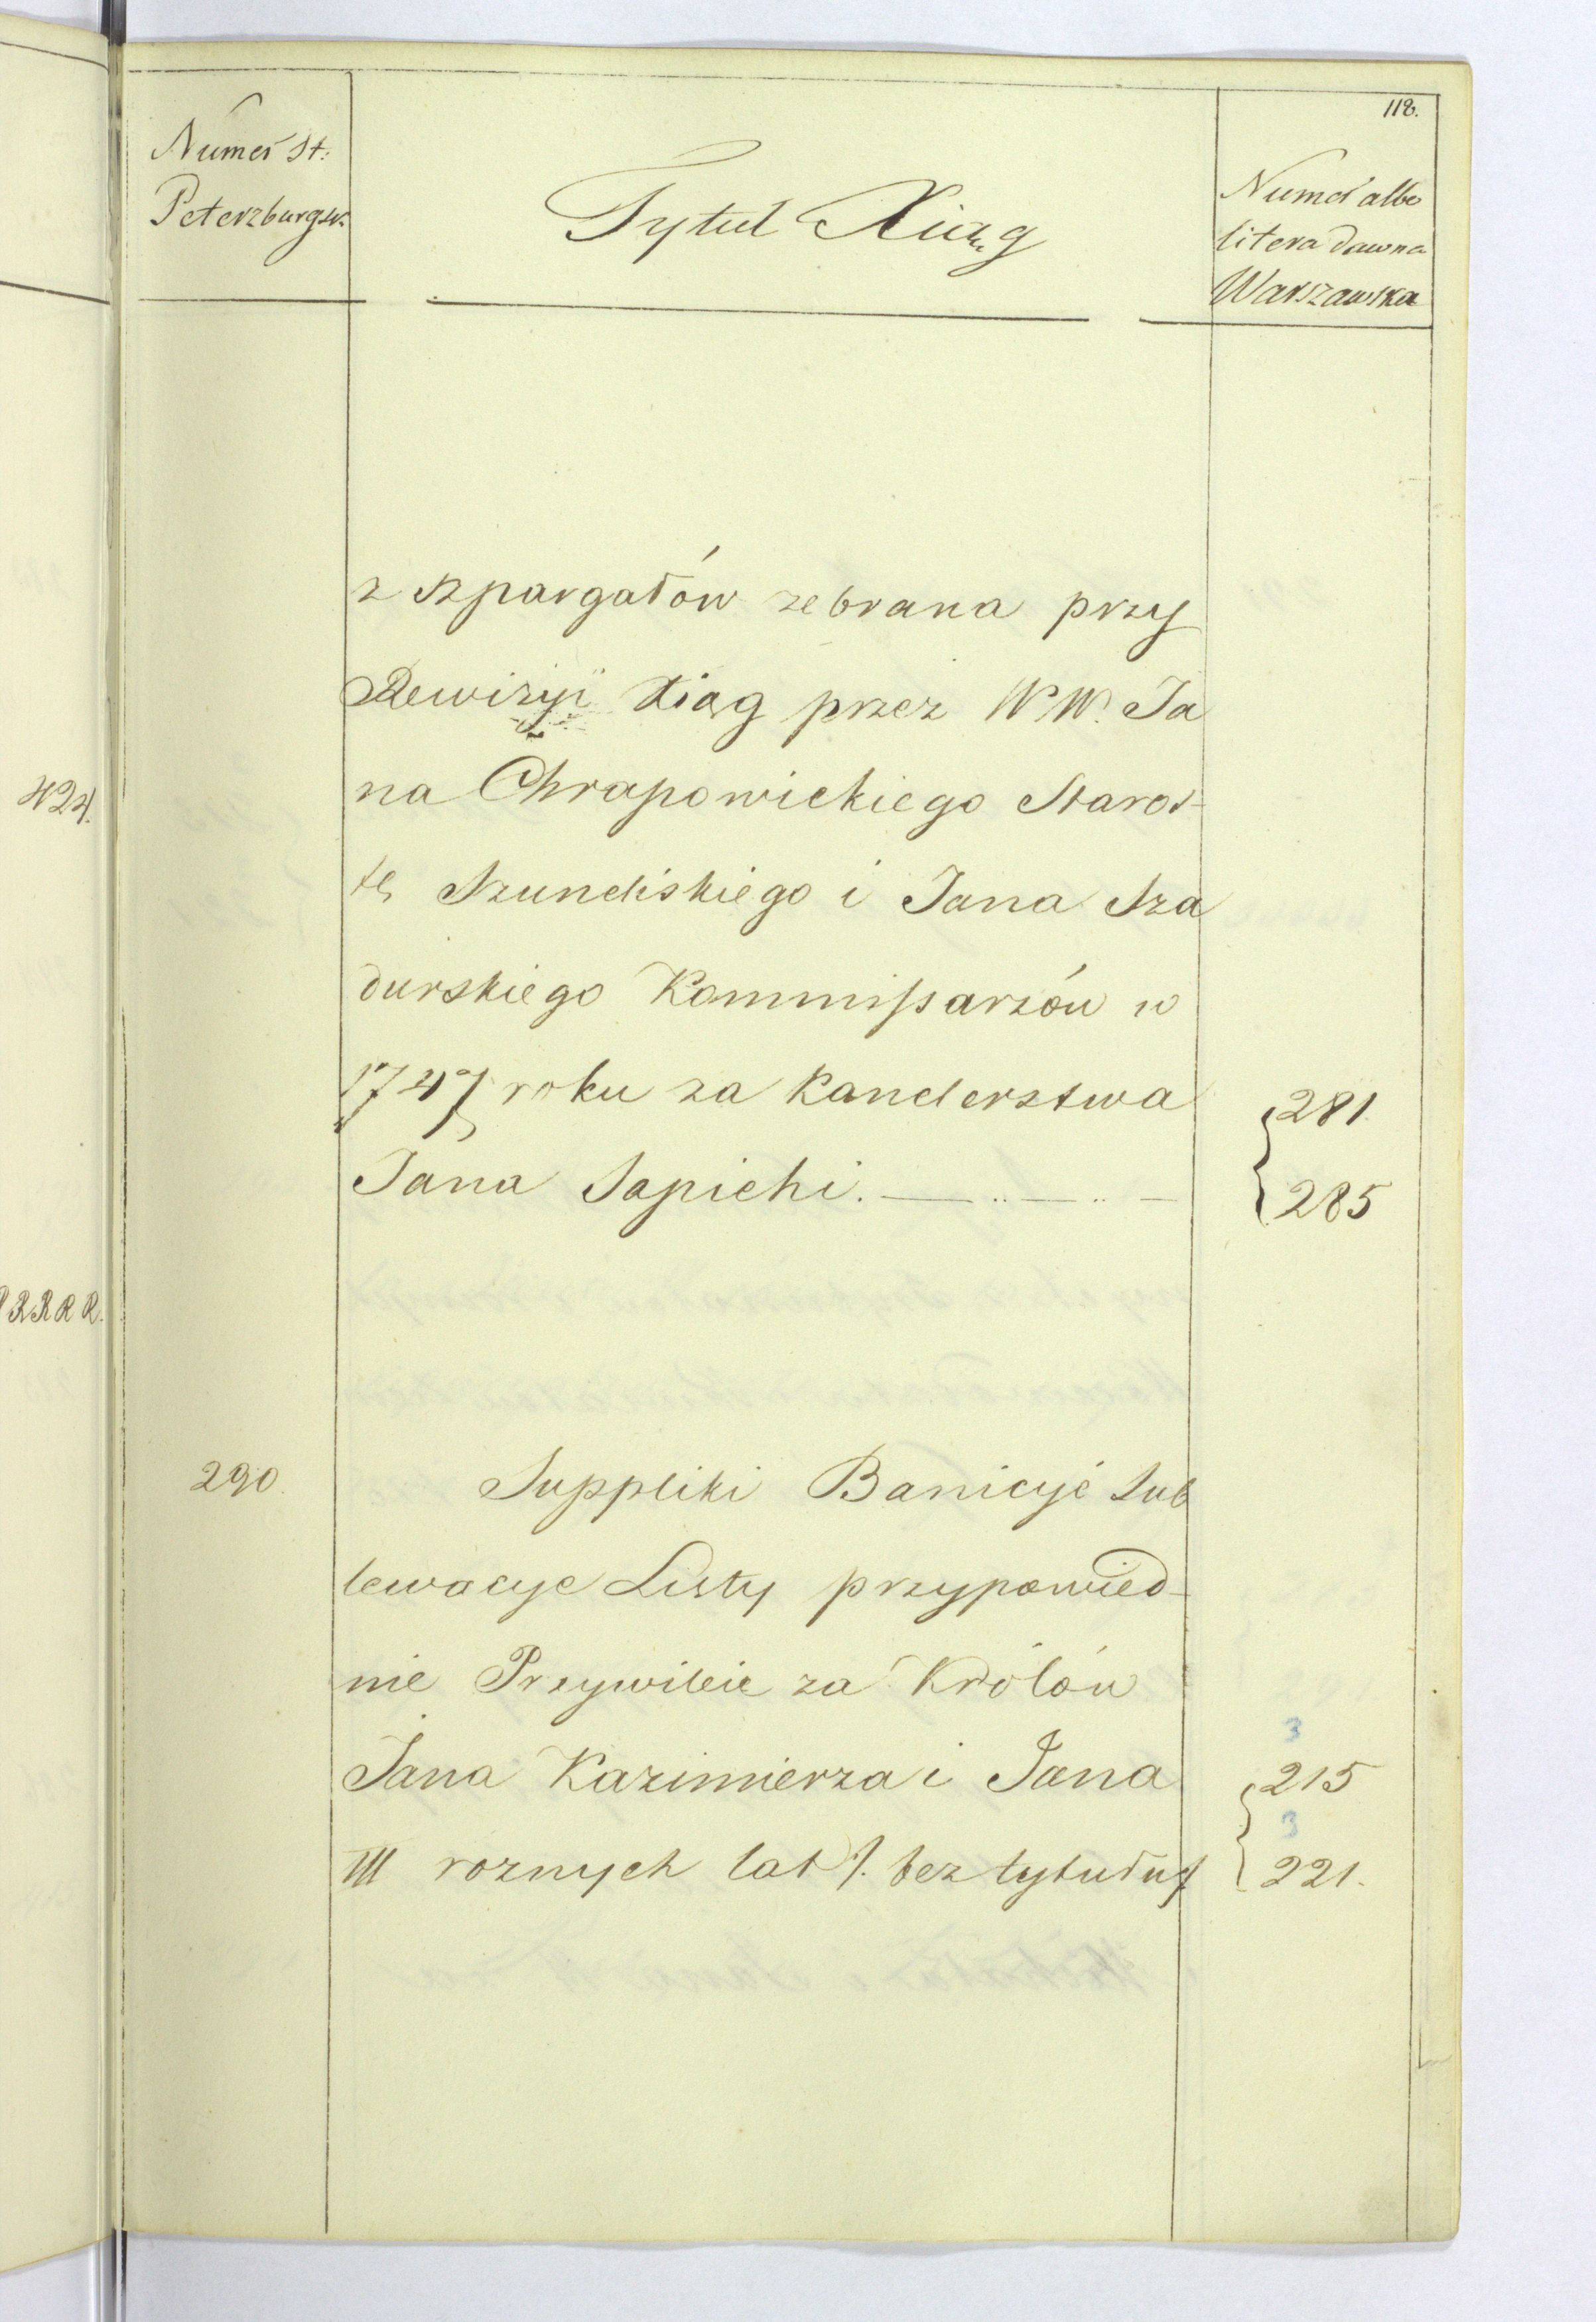 118.
Numer St:
Peterzburgsk:
Tytuł Xiąg
Numer albo
litera dawna
Warszawska
z szpargałów zebrana przy
Rewizyi Xiąg przez WW. Ja
na Chrapowickiego Staros-
tę Szundiskiego i Jana Sza
durskiego Kommissarzów w
1747 roku za Kanclerstwa
281.
Jana Sapiehi.
285
424.
RRRR.
290.
Suppliki Banicyje Sub
lewacye Listy przypowied-
nie Przywileie za Królów
3
Jana Kazimierza i Jana
215
3
III roznych lat /. bez tytułu /
221.